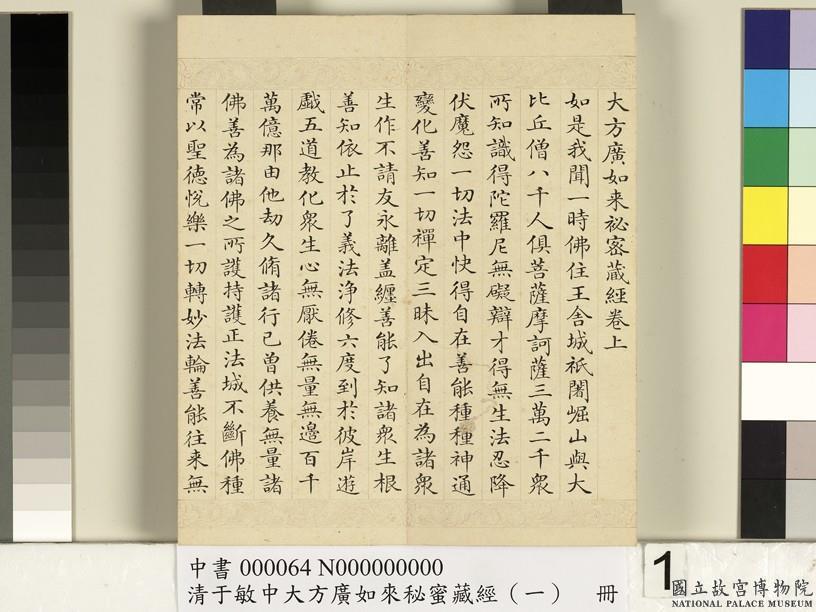 大方廣如来祕密蔵經卷上
如是我聞一時佛住王舍城祇闍崛山與大
比丘僧八千人俱菩薩摩訶薩三萬二千衆
所知識得陀羅尼無礙辯才得無生法忍降
伏魔怨一切法中快得自在善能種種神通
變化善知一切禪定三昧入出自在為諸衆
生作不請友永離盖纏善能了知諸衆生根
善知依止於了義法浄修六度到於彼岸遊
戱五道教化衆生心無厭倦無量無邊百千
萬億那由他劫久脩諸行已曾供養無量諸
佛善為諸佛之所護持護正法城不斷佛種
常以聖德悅樂一切轉妙法輪善能往来無
中書 000064 N000000000
清于敏中大方廣如來秘蜜藏經（一） 冊
1
國立故宮博物院
NATIONAL PALACE MUSEUM